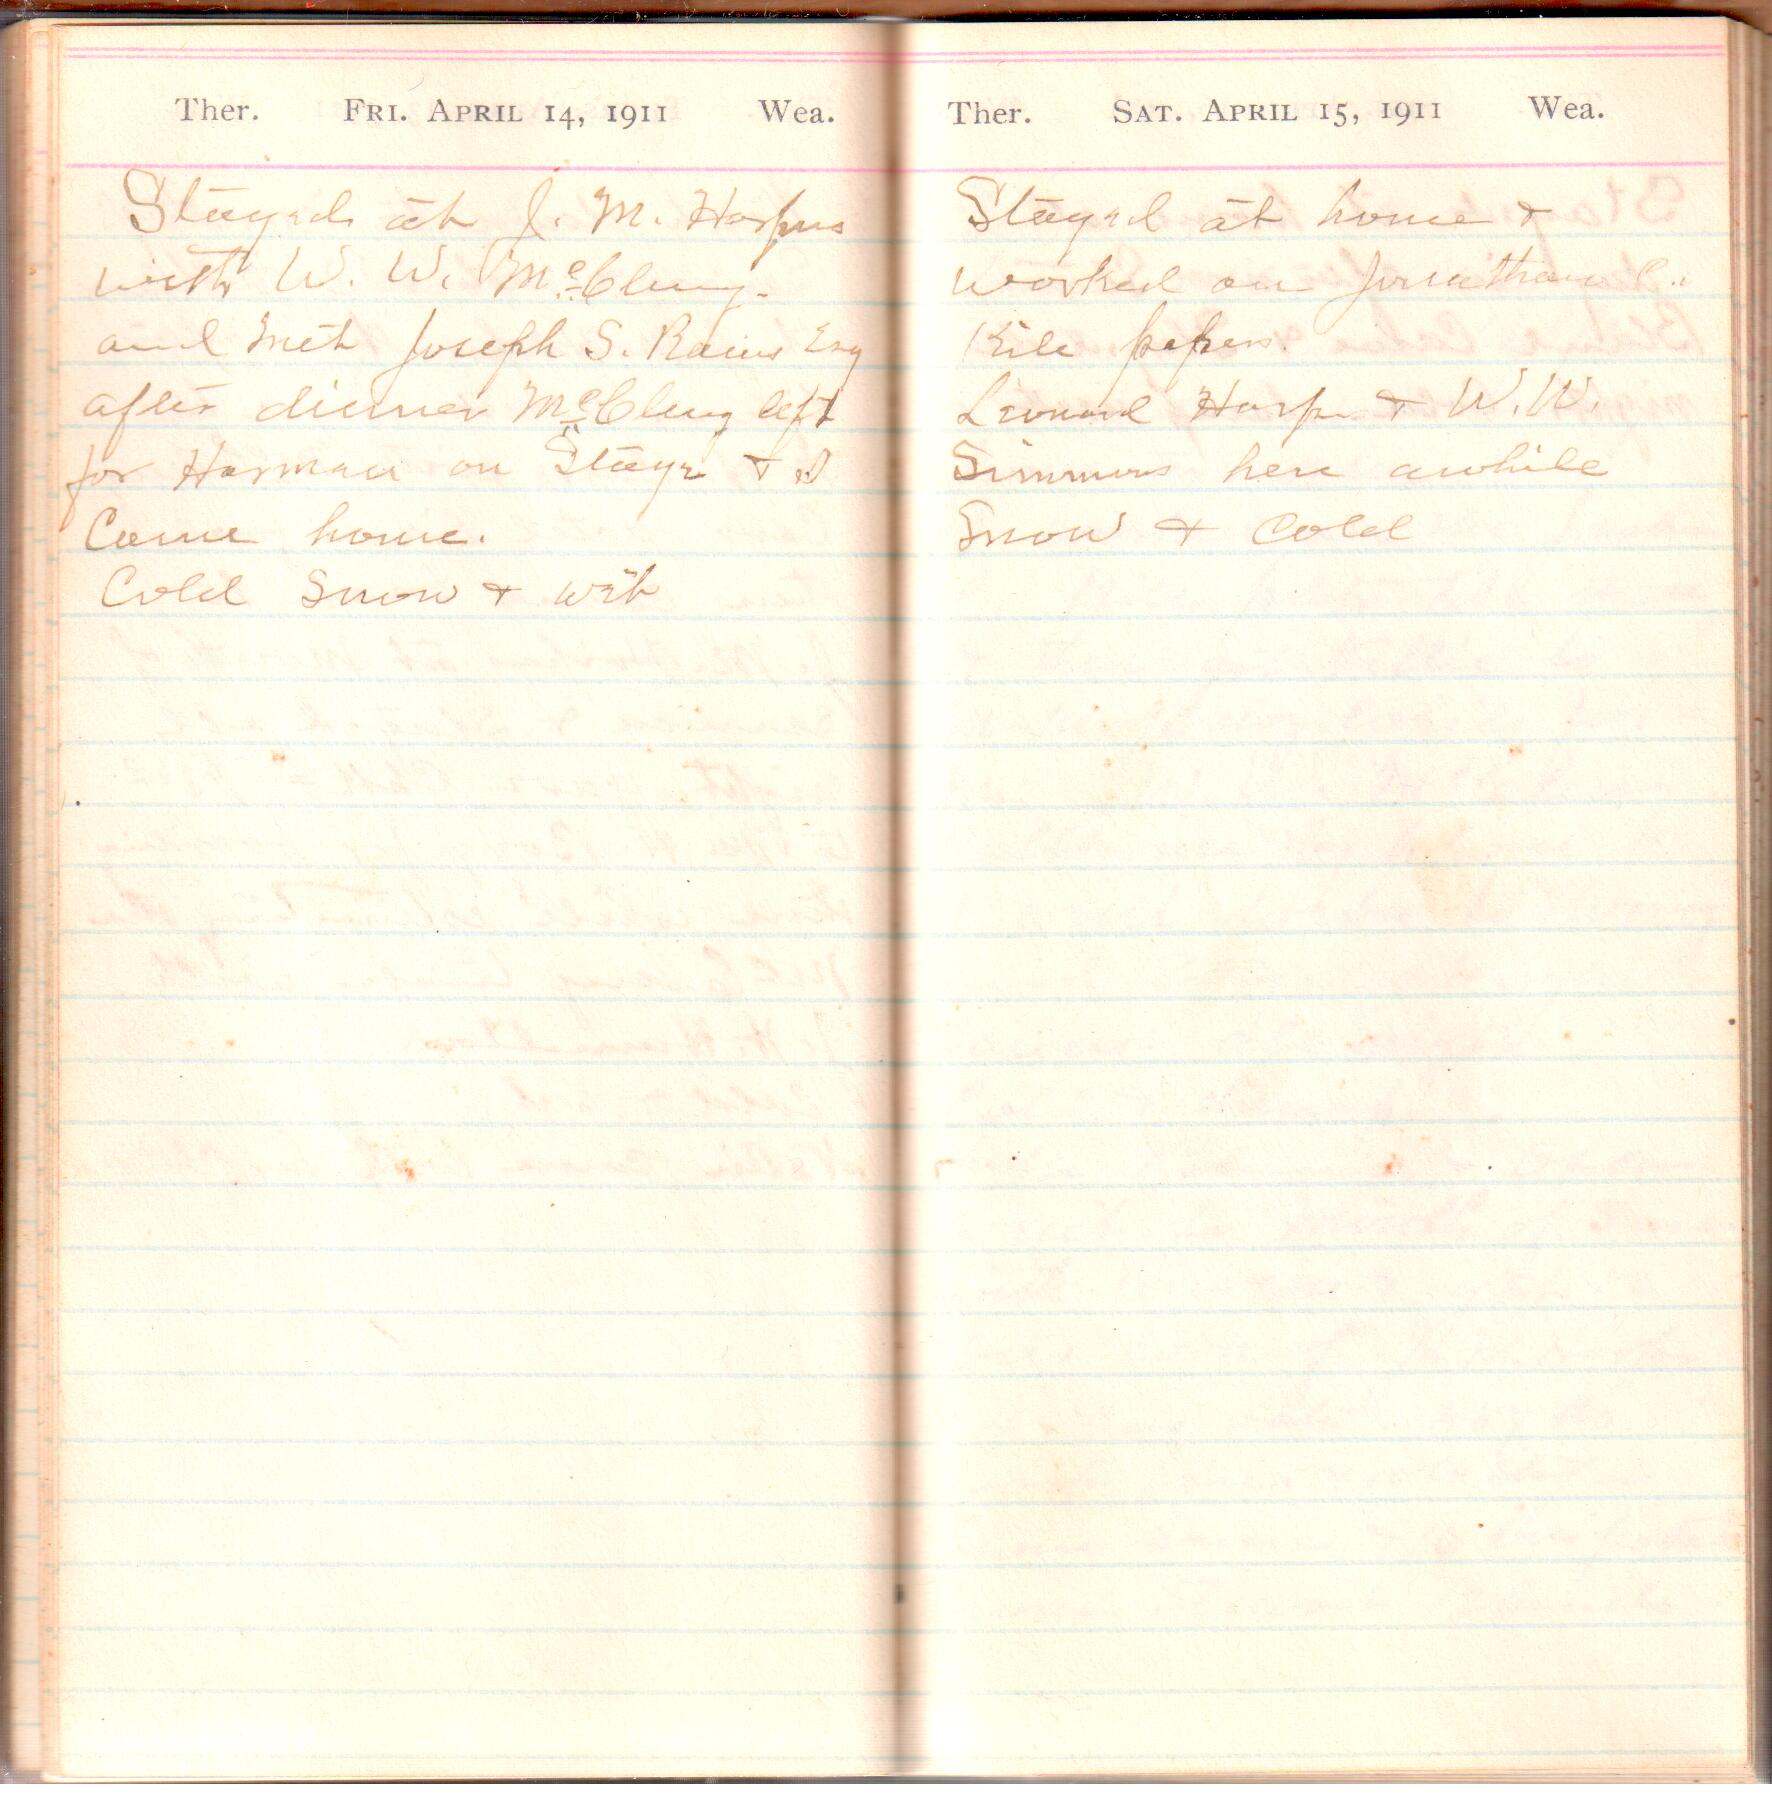 Ther. FRI. APRIL 14, 1911 Wea.
Stayed at J. M. Harpers
with W. W. McClung.
and met Joseph S. Rains Esq
after dinner McClung left
for Harman on Stage & I
Came home.
Cold Snow & wet
Ther. SAT. APRIL 15, 1911 Wea.
Stayed at home &
worked on Jonathan
Kile papers.
Leonard Harper & W. W.
Simmons here awhile
Snow & Cold